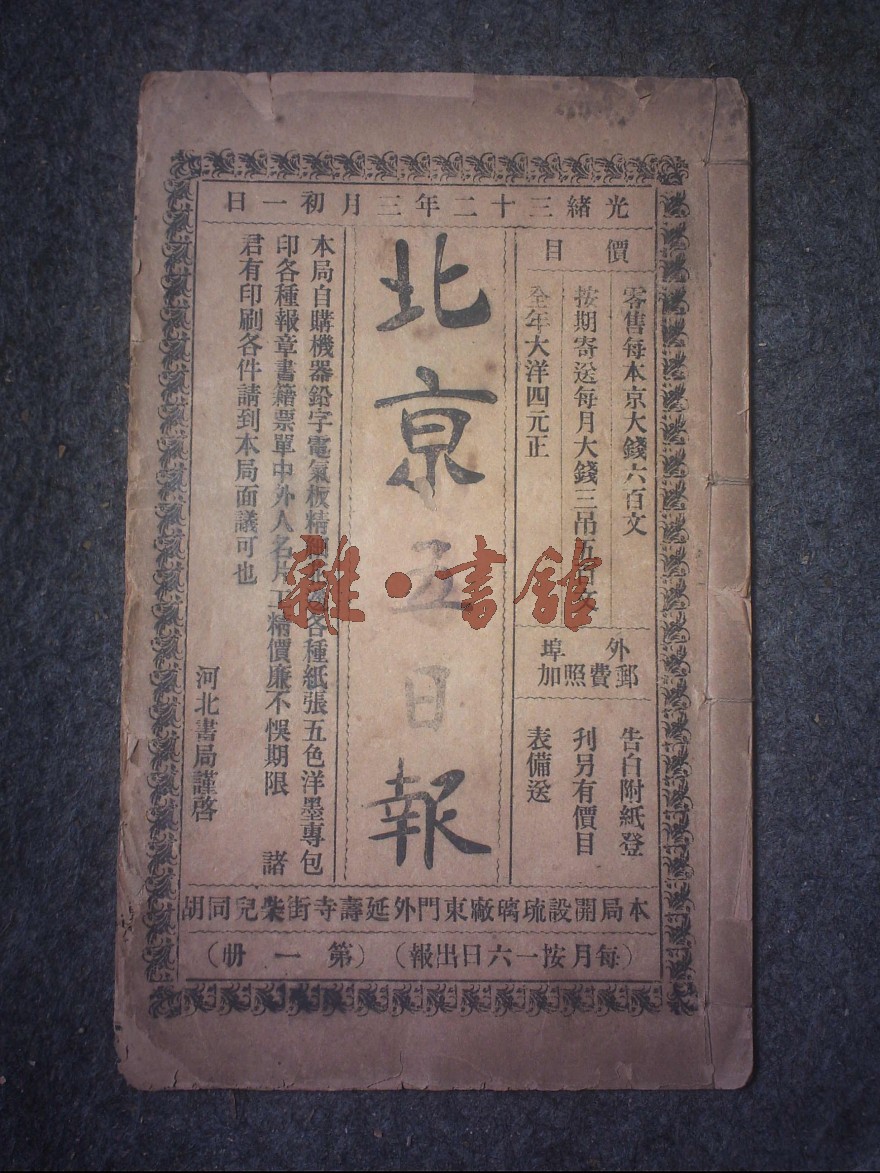 光緒三十二年三月初一日
價目
零售每本京大錢六百文
按期寄送每月大錢三吊五百文
全年大洋四元正
外埠
郵費照加
告白附紙登
刊另有價目
表備送
北京五日報
本局自購機器鉛字電氣板精 各種紙張五色洋墨專包
印各種報章書籍票單中外人名片工精價廉不悞期限 諸
君有印刷各件請到本局面議可也
河北書局謹啓
本局開設琉璃廠東門外延壽寺街柴兒同胡
(每月按一六日出報)(第一册)
雜·書館